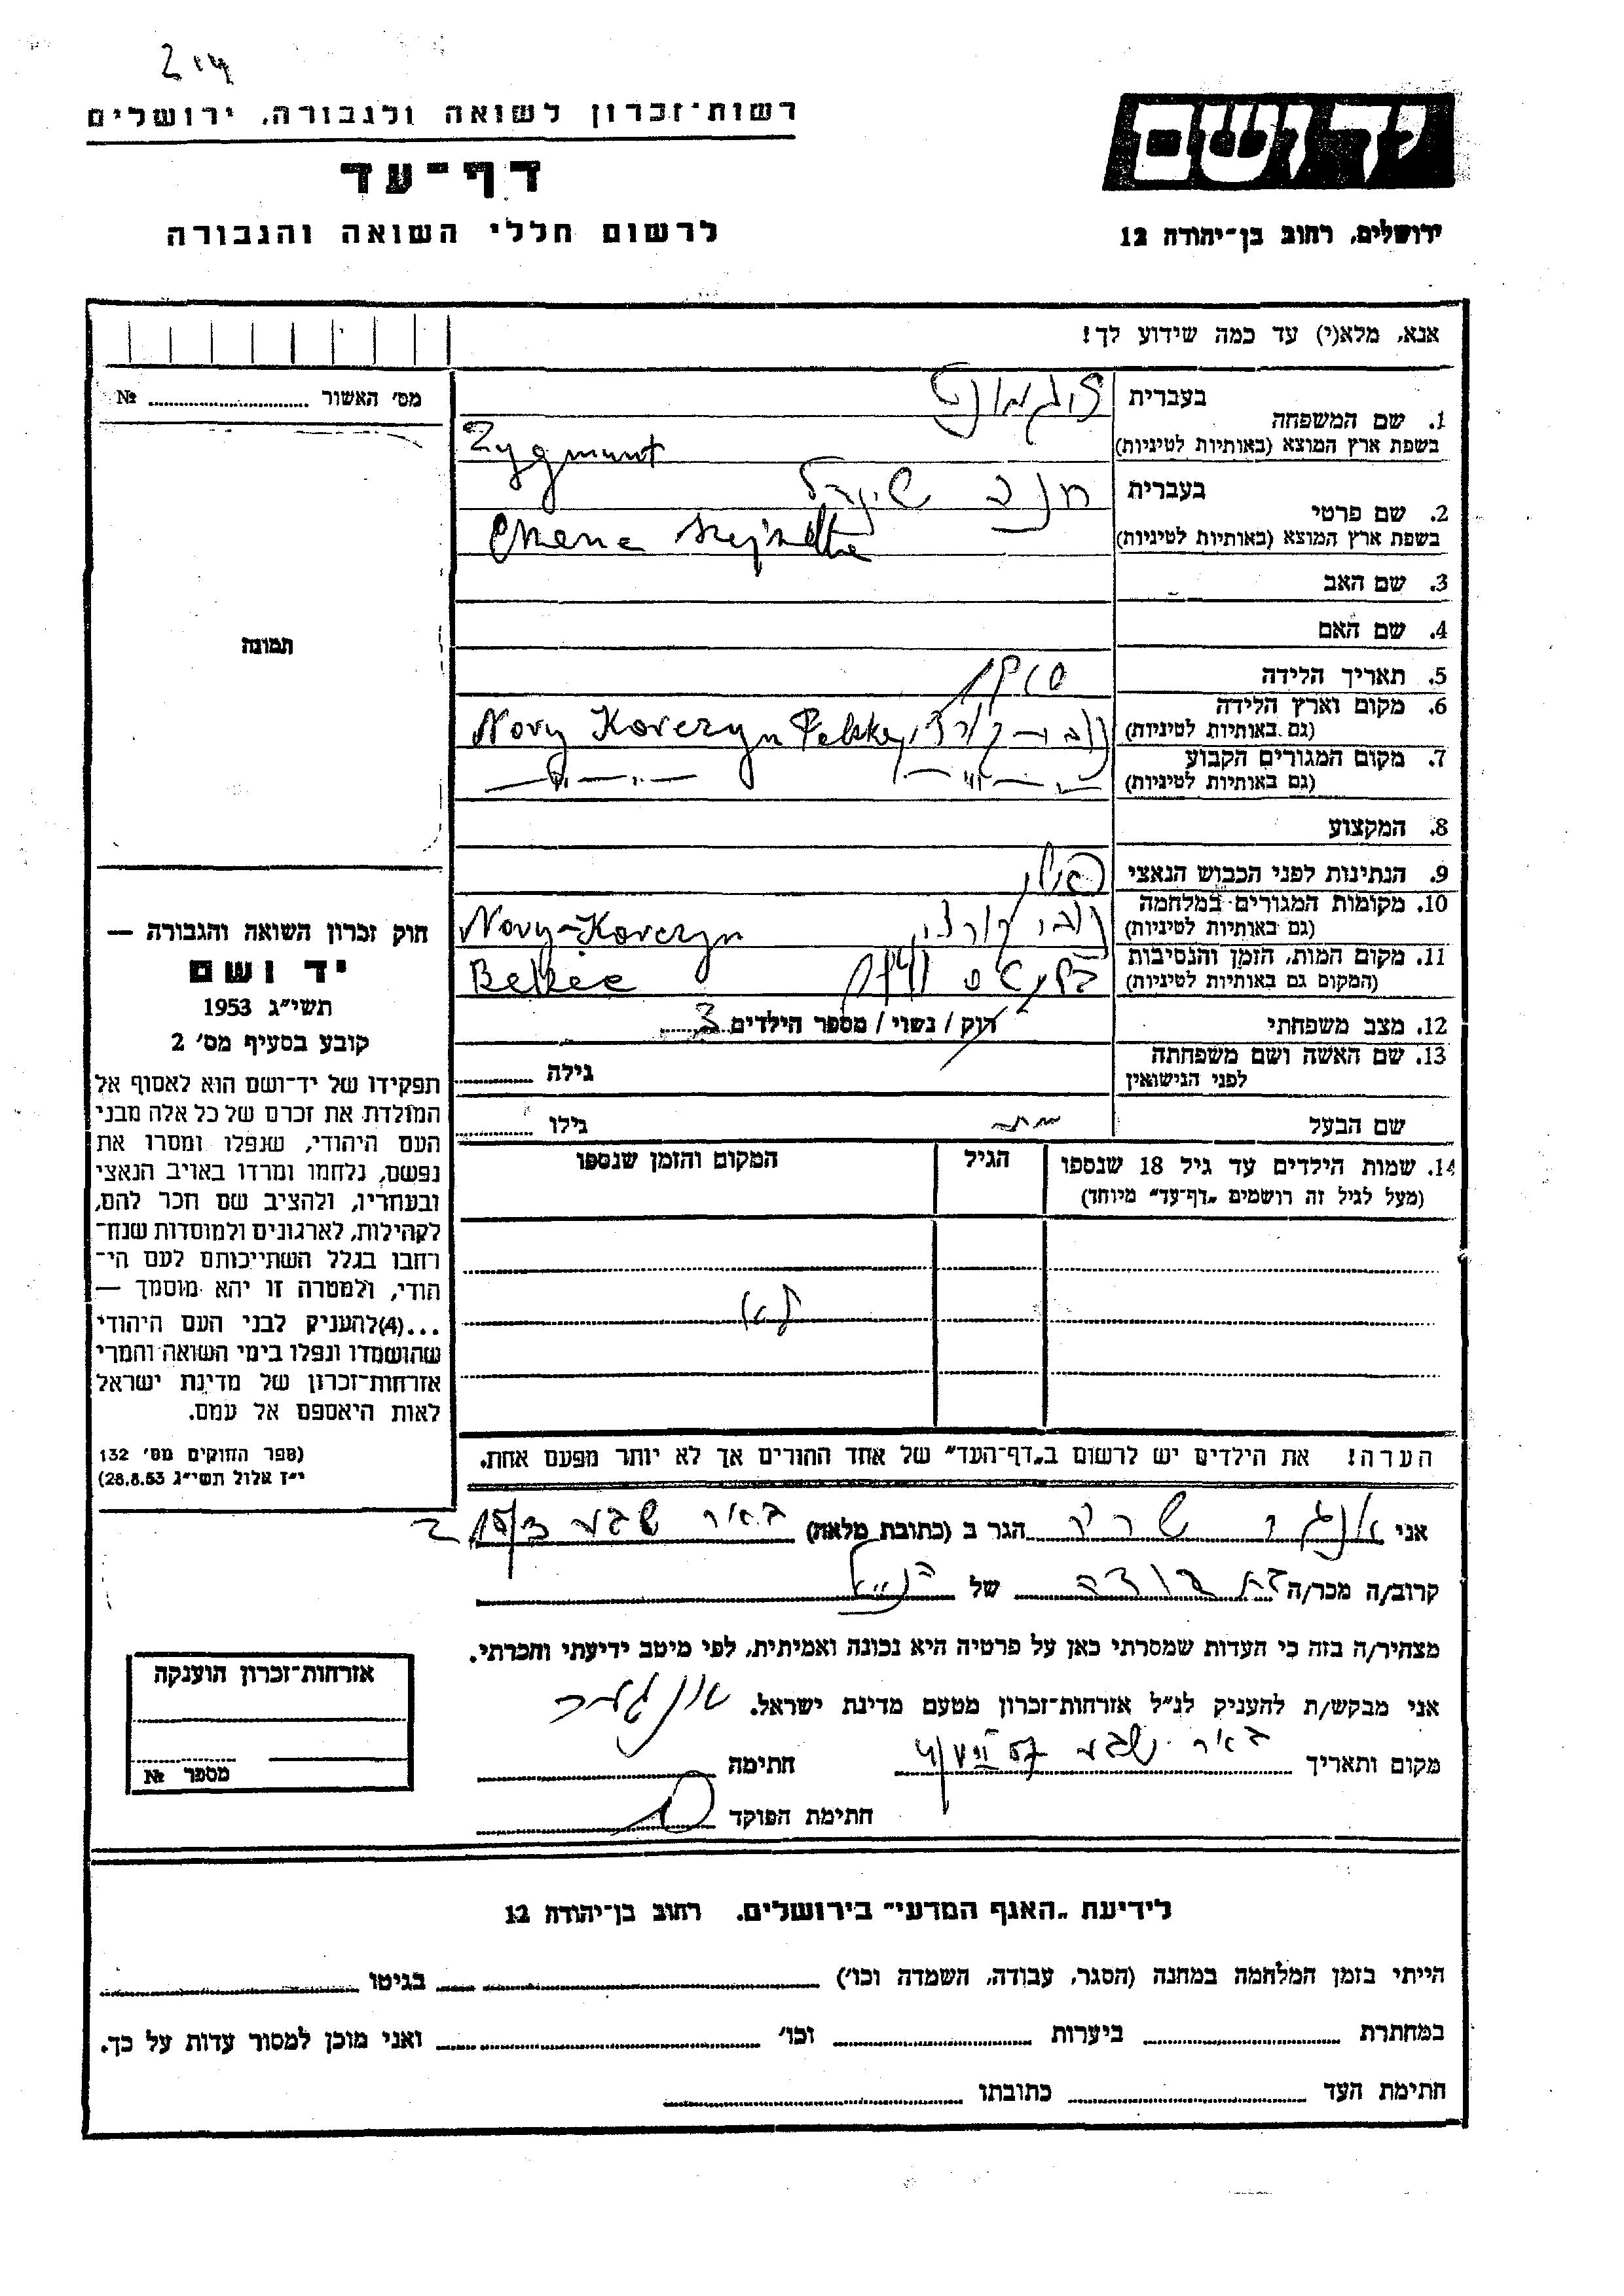 רשות־זכרון לשואה ולגבורה, ירושלים
דף־עד
לרשום חללי השואה והגבורה
ידושם
ירושלים, רחוב בן־יהודה 12
אנא, מלא(י) עד כמה שידוע לך!
מס׳ האשור № 
תמונה
חוק זכרון השואה והגבורה —
יד ושם
תשי״ג 1953
קובע בסעיף מס׳ 2
תפקידו של יד־ושם הוא לאסוף אל
המולדת את זכרם של כל אלה מבני
העם היהודי, שנפלו ומסרו את
נפשם, נלחמו ומרדו באויב הנאצי
ובעוזריו, ולהציב שם וזכר להם,
לקהילות, לארגונים ולמוסדות שנח־
רחבו בגלל השתייכותם לעם הי־
הודי, ולמטרה זו יהא מוסמך —
...(4)להעניק לבני העם היהודי
שהושמדו ונפלו בימי השואה והמרי
אזרחות־זכרון של מדינת ישראל
לאות היאספם אל עמם.
(ספר החוקים מס׳ 132
י״ז אלול תשי״ג 28.8.53)
1. שם המשפחה
בעברית זיגמונט
בשפת ארץ המוצא (באותיות לטיניות) Zygmunt
2. שם פרטי
בעברית חנה
בשפת ארץ המוצא (באותיות לטיניות)
3. שם האב
4. שם האם
5. תאריך הלידה
6. מקום וארץ הלידה
(גם באותיות לטיניות) Novy Korczyn
7. מקום המגורים הקבוע
(גם באותיות לטיניות) — ״ — ״ —
8. המקצוע
9. הנתינות לפני הכבוש הנאצי
10. מקומות המגורים במלחמה
(גם באותיות לטיניות) Novy-Korczyn
11. מקום המות, הזמן והנסיבות
(המקום גם באותיות לטיניות)
12. מצב משפחתי רוק / נשוי / מספר הילדים 3
13. שם האשה ושם משפחתה
לפני הנישואין
גילה
שם הבעל
גילו
14. שמות הילדים עד גיל 18 שנספו
(מעל לגיל זה רושמים „דף־עד״ מיוחד)
הגיל
המקום והזמן שנספו
הערה! את הילדים יש לרשום ב„דף־העד״ של אחד ההורים אך לא יותר מפעם אחת.
אני אונגר הגר ב (כתובת מלאה) באר שבע
קרוב/ה מכר/ה של הנ״ל
מצהיר/ה בזה כי העדות שמסרתי כאן על פרטיה היא נכונה ואמיתית, לפי מיטב ידיעתי והכרתי.
אני מבקש/ת להעניק לנ״ל אזרחות־זכרון מטעם מדינת ישראל.
מקום ותאריך באר שבע
חתימה
חתימת הפוקד
אזרחות־זכרון הוענקה
מספר №
לידיעת „האגף המדעי״ בירושלים. רחוב בן־יהודה 12
הייתי בזמן המלחמה במחנה (הסגר, עבודה, השמדה וכו׳) בגיטו
במחתרת ביערות וכו׳ ואני מוכן למסור עדות על כך.
חתימת העד כתובתו